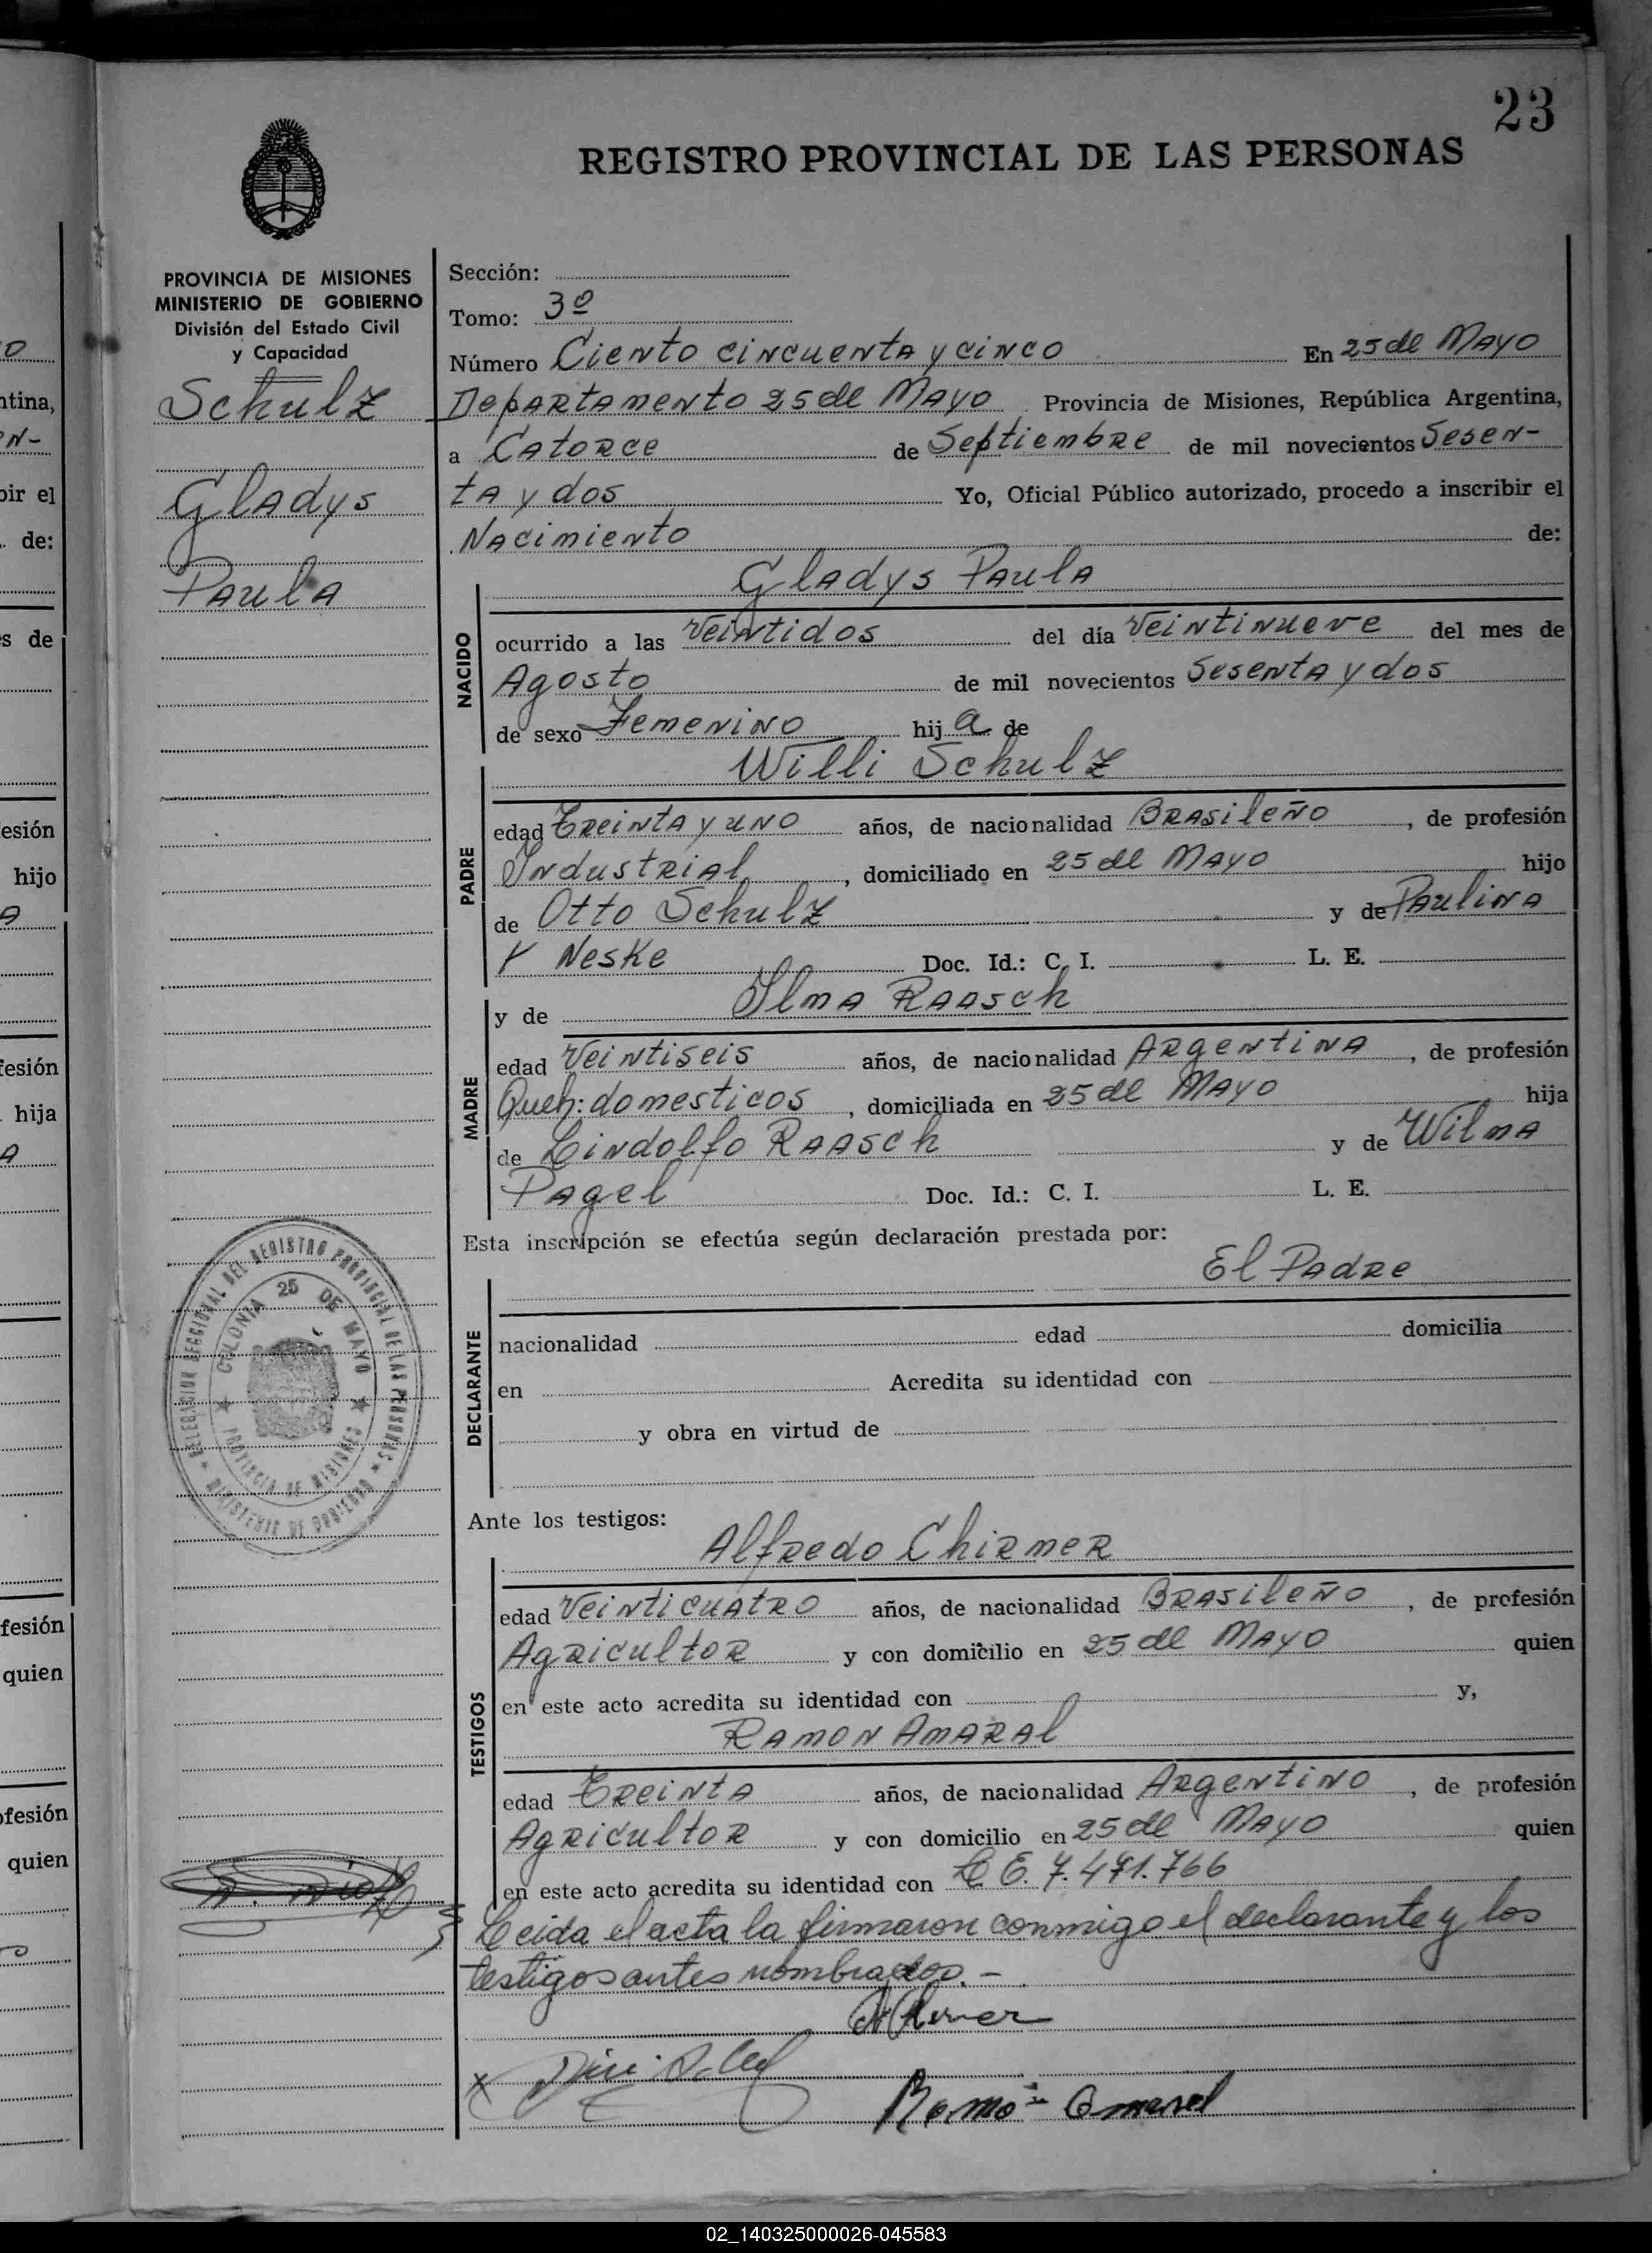 23
REGISTRO PROVINCIAL DE LAS PERSONAS
PROVINCIA DE MISIONES
MINISTERIO DE GOBIERNO
División del Estado Civil
y Capacidad
Schulz
Gladys
Paula
Sección:
Tomo: 3º
Número Ciento cincuenta y cinco En 25 de Mayo
Departamento 25 de Mayo Provincia de Misiones, República Argentina,
a Catorce de Septiembre de mil novecientos Sesen-
ta y dos Yo, Oficial Público autorizado, procedo a inscribir el
Nacimiento de:
Gladys Paula
NACIDO
ocurrido a las Veintidos del día Veintinueve del mes de
Agosto de mil novecientos Sesenta y dos
de sexo Femenino hij a de
Willi Schulz
PADRE
edad Treinta y uno años, de nacionalidad Brasileño, de profesión
Industrial, domiciliado en 25 de Mayo hijo
de Otto Schulz y de Paulina
Y Neske Doc. Id.: C. I. L. E.
y de Ilma Raasch
MADRE
edad Veintiseis años, de nacionalidad Argentina, de profesión
Queh: domesticos, domiciliada en 25 de Mayo hija
de Lindolfo Raasch y de Wilma
Pagel Doc. Id.: C. I. L. E.
Esta inscripción se efectúa según declaración prestada por:
El Padre
DECLARANTE
nacionalidad edad domicilia
en Acredita su identidad con
y obra en virtud de
DELEGACION SECCIONAL DEL REGISTRO PROVINCIAL DE LAS PERSONAS
MINISTERIO DE GOBIERNO
COLONIA 25 DE MAYO
PROVINCIA DE MISIONES
Ante los testigos:
Alfredo Chirmer
TESTIGOS
edad Veinticuatro años, de nacionalidad Brasileño, de profesión
Agricultor y con domicilio en 25 de Mayo quien
en este acto acredita su identidad con y,
Ramon Amaral
edad Treinta años, de nacionalidad Argentino, de profesión
Agricultor y con domicilio en 25 de Mayo quien
en este acto acredita su identidad con L E. 7.471.766
Leida el acta la firmaron conmigo el declarante y los
testigos antes nombrados.-
x
Ramon Amarel
02_140325000026-045583